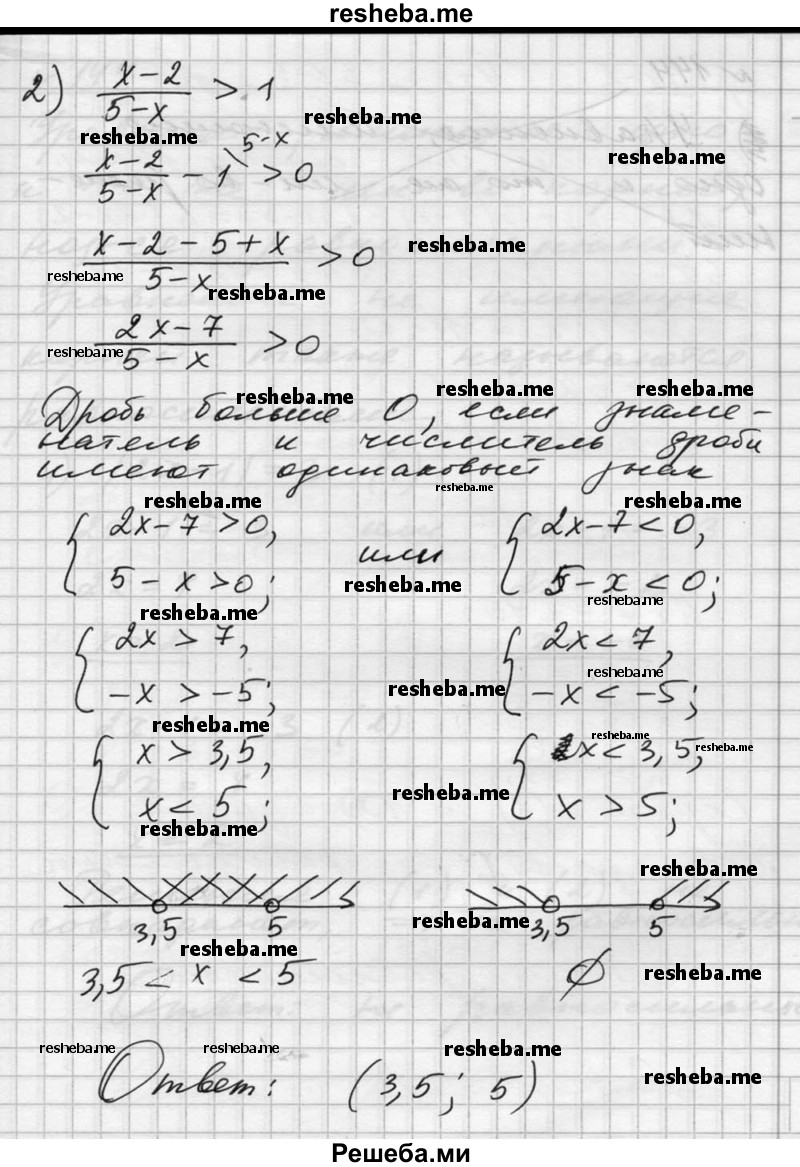 resheba.me
2) (x-2)/(5-x) > 1
resheba.me
resheba.me
resheba.me
(x-2)/(5-x) - 1 \5-x > 0
(x-2-5+x)/(5-x) > 0
resheba.me
resheba.me
resheba.me
(2x-7)/(5-x) > 0
resheba.me
resheba.me
resheba.me
resheba.me
Дробь больше 0, если знаме-
натель и числитель дроби
имеют одинаковый знак
resheba.me
resheba.me
resheba.me
{ 2x-7>0, или { 2x-7<0,
5-x>0; 5-x<0;
resheba.me
resheba.me
resheba.me
{ 2x>7, { 2x<7,
-x>-5; -x<-5;
resheba.me
resheba.me
resheba.me
resheba.me
resheba.me
{ x>3,5, { x<3,5,
x<5; x>5;
resheba.me
resheba.me
resheba.me
3,5 5 3,5 5
resheba.me
resheba.me
3,5 < x < 5 ∅
resheba.me
resheba.me
resheba.me
resheba.me
Ответ: (3,5; 5)
resheba.me
Решеба.ми